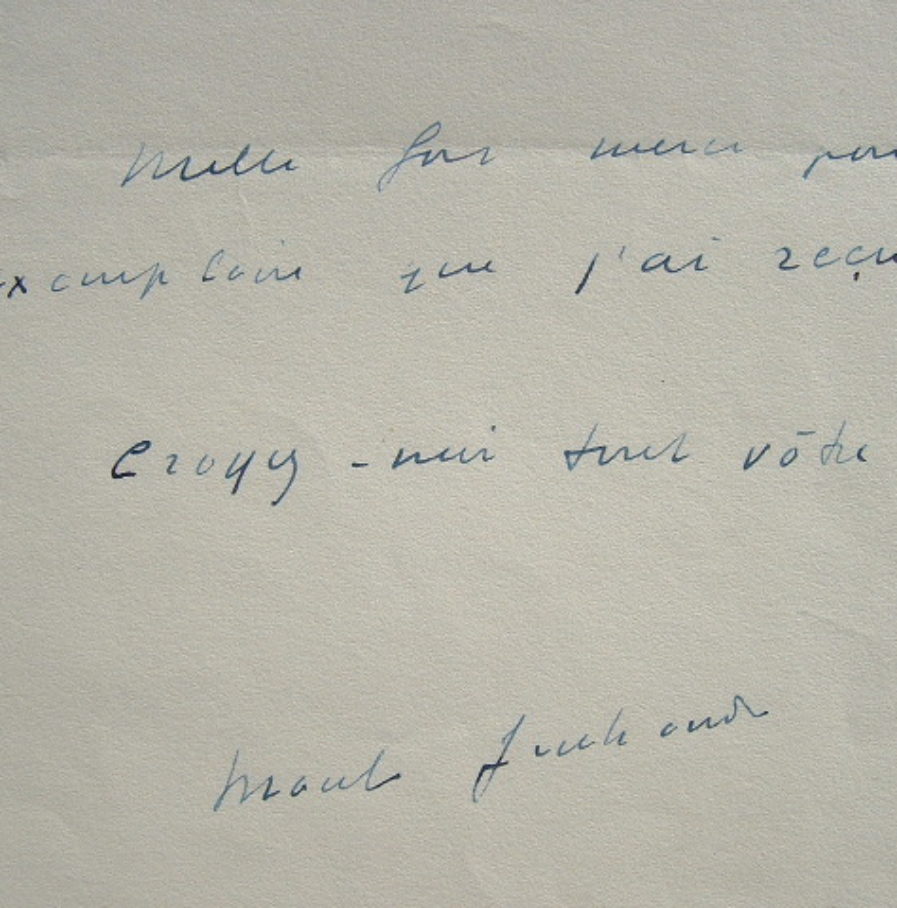 Mille fois merci pour
exemplaire que j'ai reçu
Croyez-moi tout vôtre
Marcel Jouhandeau